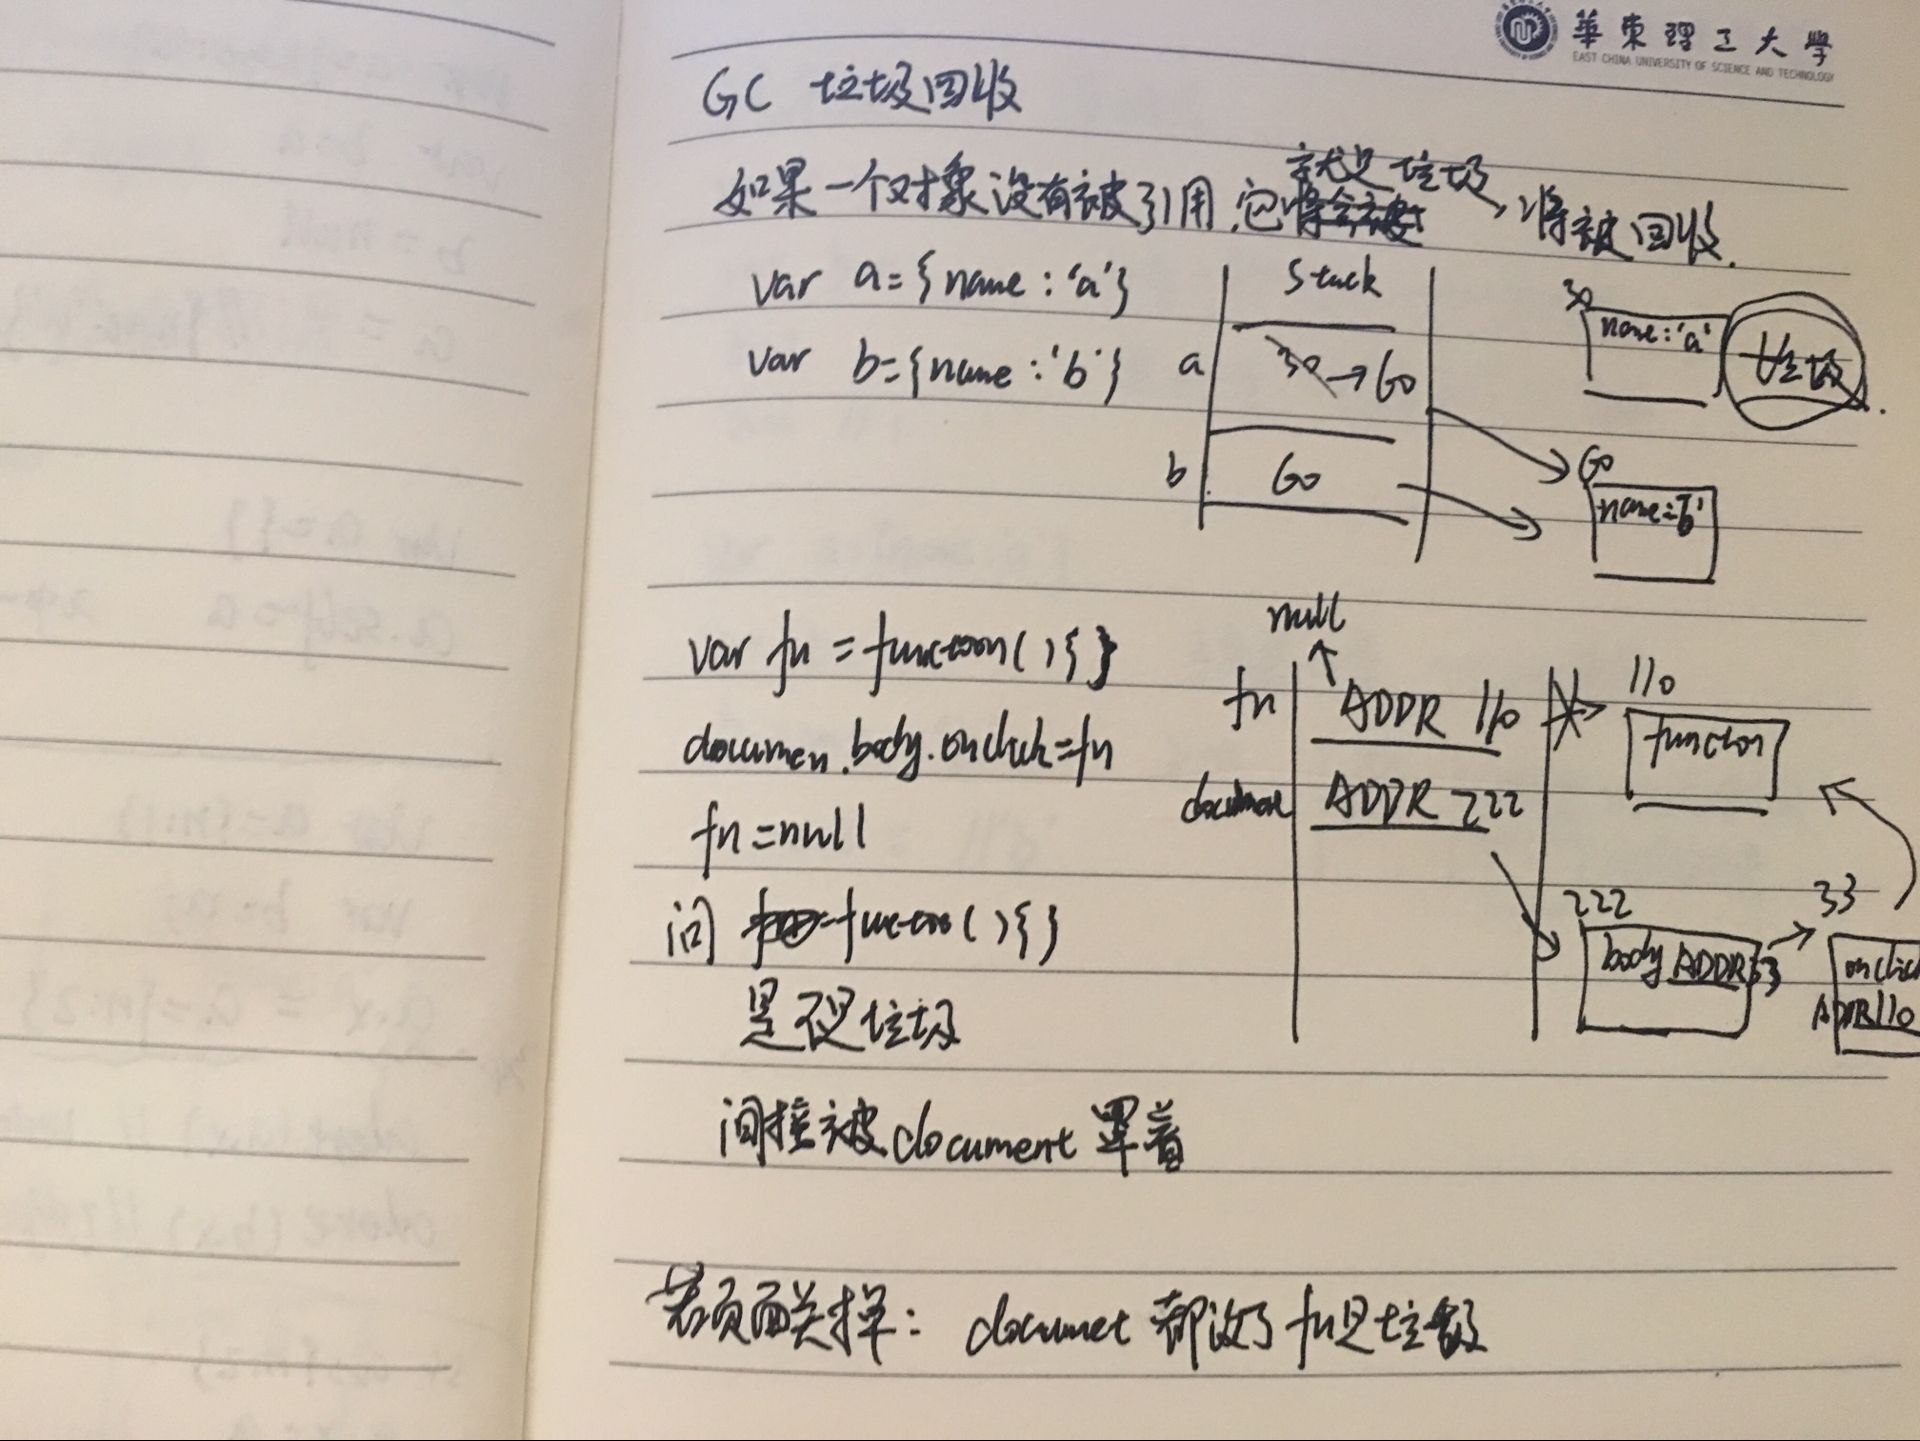 華東理工大學
EAST CHINA UNIVERSITY OF SCIENCE AND TECHNOLOGY
GC 垃圾回收
如果一个对象没有被引用,它就是垃圾,将被回收.
var a={name:'a'}
var b={name:'b'}
Stack
a 30→60
b 60
30
name:'a'
垃圾
60
name:'b'
var fn=function(){}
documen.body.onclick=fn
fn=null
问 function(){}
是不是垃圾
null
fn ADDR 110
document ADDR 222
110
function
222
body ADDR33
33
onclick
ADDR110
间接被document罩着
若页面关掉: documet 都没了 fn是垃圾